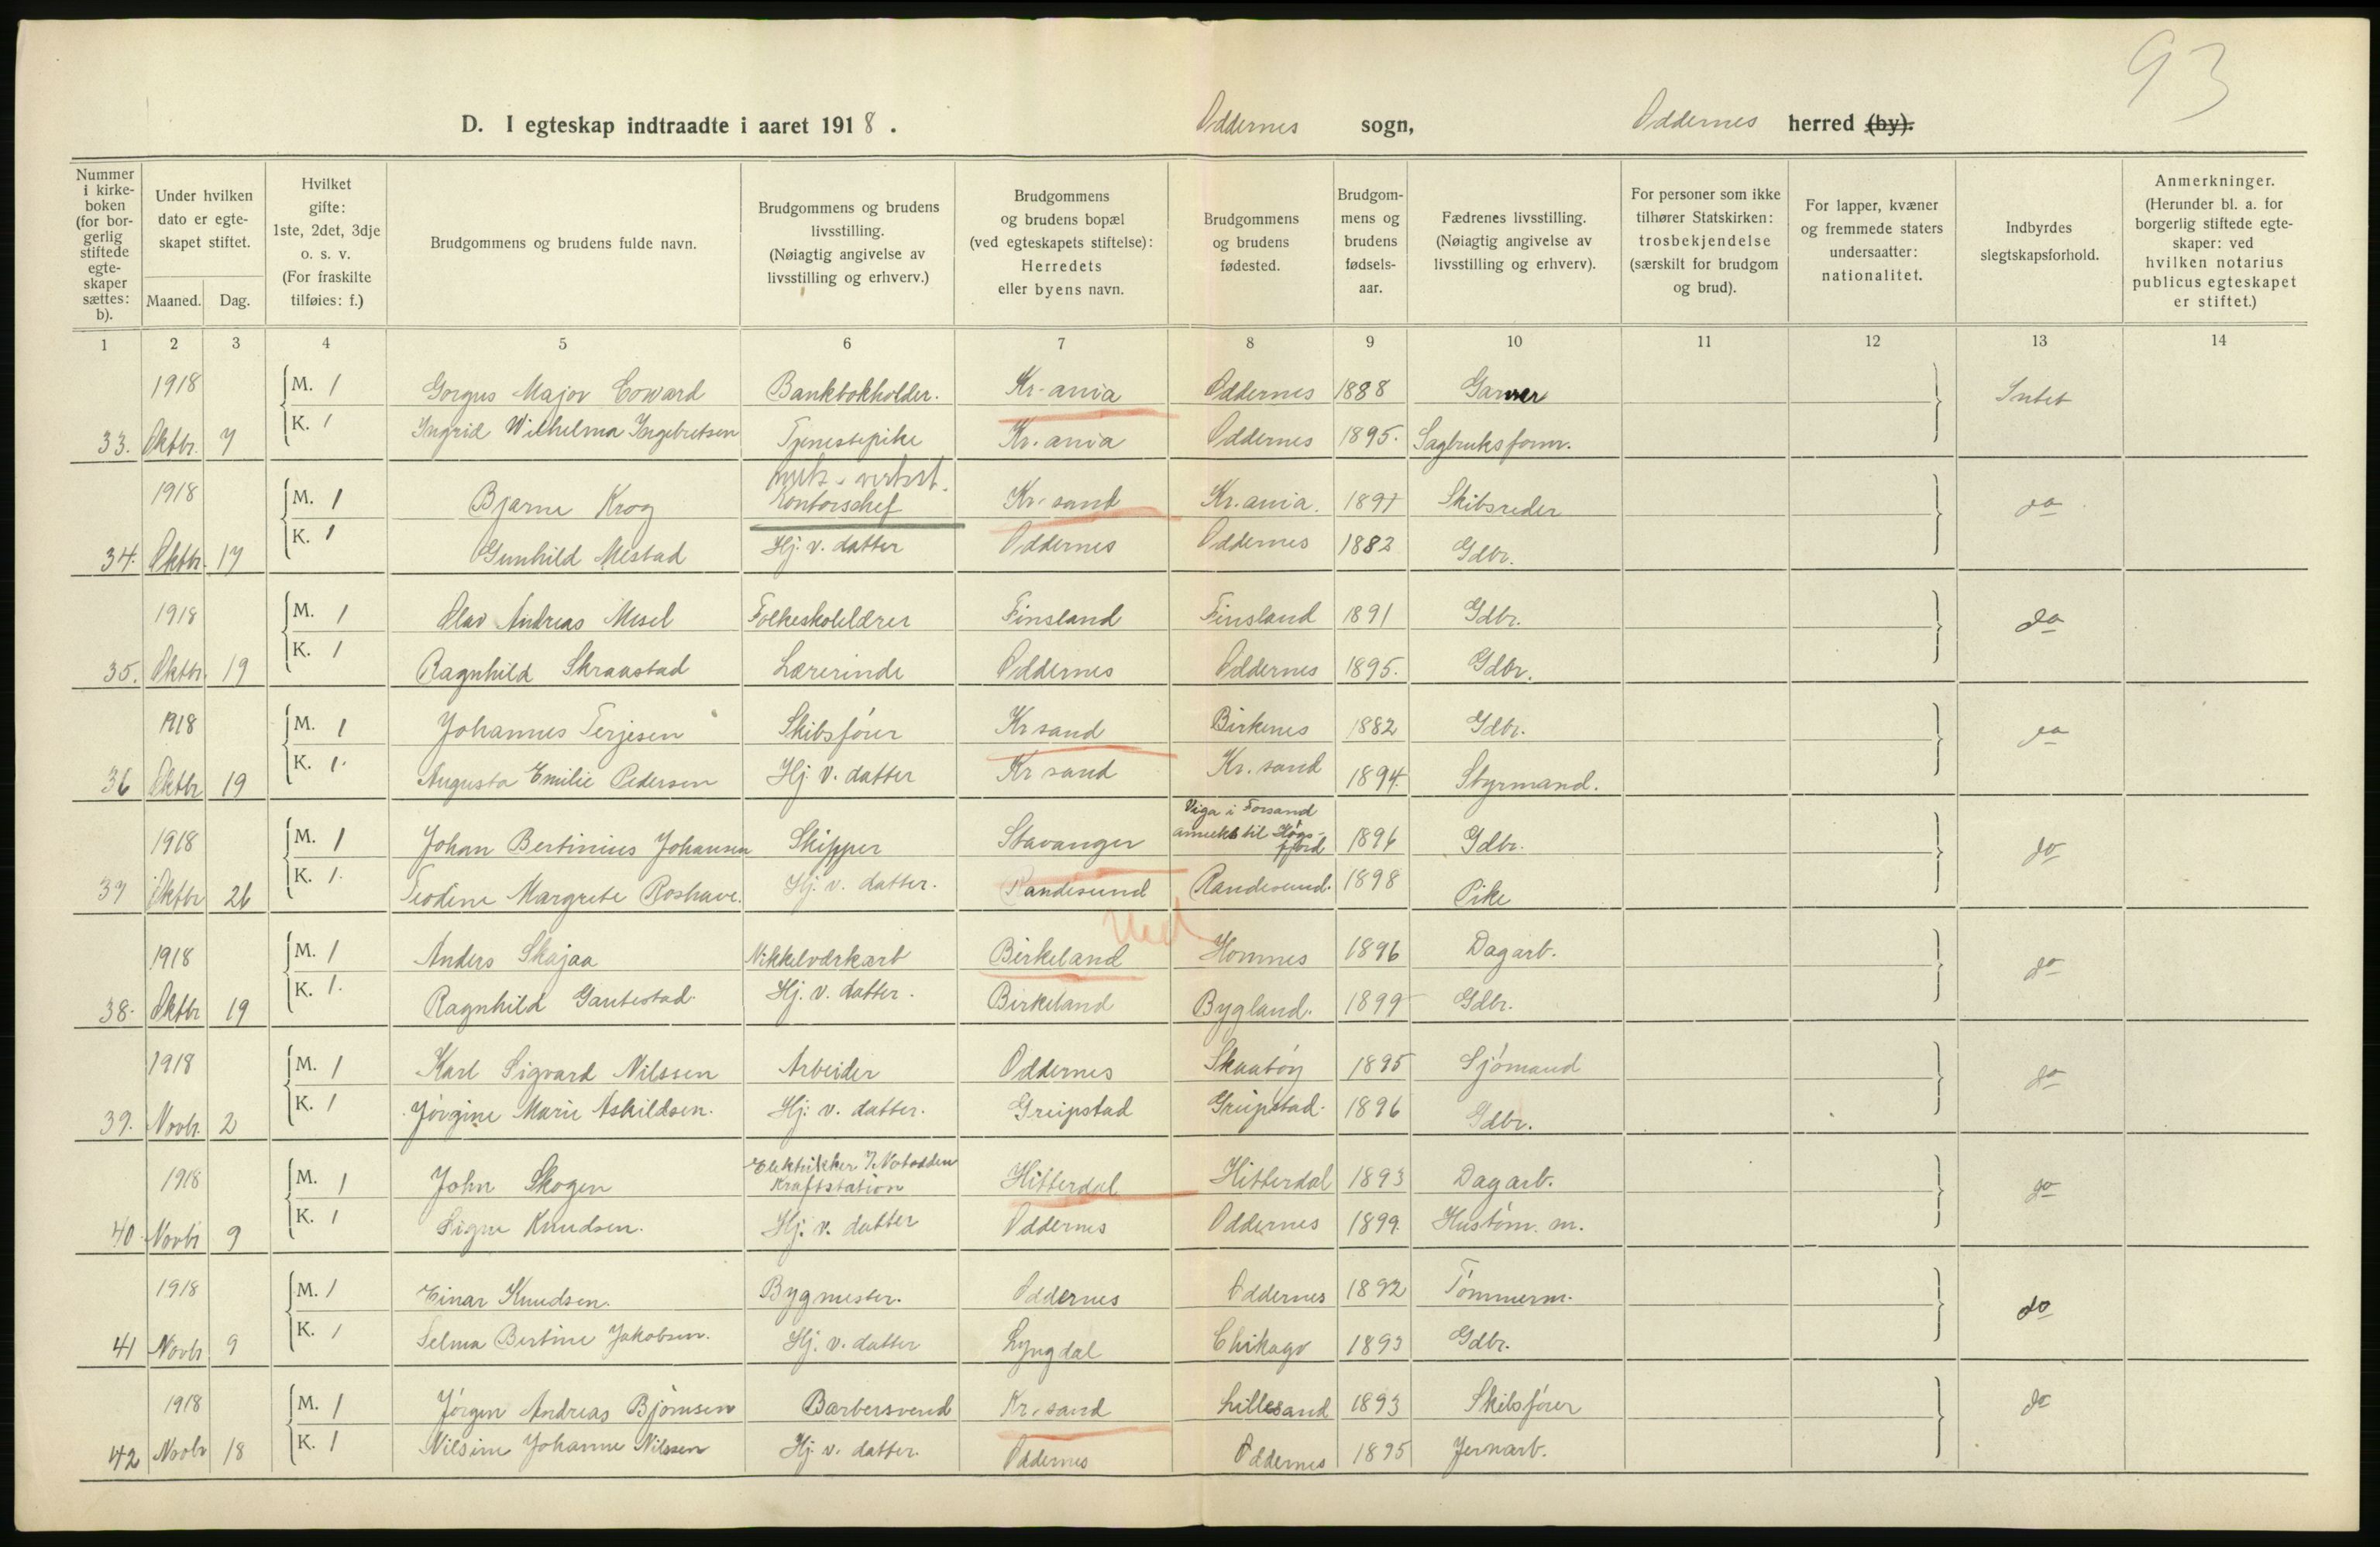 93
D. I egteskap indtraadte i aaret 1918. Oddernes sogn, Oddernes herred (by).
Nummer i kirke-boken (for bor-gerlig stiftede egte-skaper sættes: b).
Under hvilken dato er egte-skapet stiftet.
Maaned. Dag.
Hvilket gifte: 1ste, 2det, 3dje o. s. v. (For fraskilte tilføies: f.)
Brudgommens og brudens fulde navn.
Brudgommens og brudens livsstilling. (Nøiagtig angivelse av livsstilling og erhverv.)
Brudgommens og brudens bopæl (ved egteskapets stiftelse): Herredets eller byens navn.
Brudgommens og brudens fødested.
Brudgom-mens og brudens fødsels-aar.
Fædrenes livsstilling. (Nøiagtig angivelse av livsstilling og erhverv).
For personer som ikke tilhører Statskirken: trosbekjendelse (særskilt for brudgom og brud).
For lapper, kvæner og fremmede staters undersaatter: nationalitet.
Indbyrdes slegtskapsforhold.
Anmerkninger. (Herunder bl. a. for borgerlig stiftede egte-skaper: ved hvilken notarius publicus egteskapet er stiftet.)
1 2 3 4 5 6 7 8 9 10 11 12 13 14
1918 M. 1 Gorgus Major Coward Bankbokholder. Kr-ania Oddernes 1888 Garver Intet
33. Oktbr. 7 K. 1 Ingrid Wilhelma Ingebretsen Tjenestepike Kr. ania Oddernes 1895. Sagbruksform.
1918 M. 1 Bjarne Krog Kontorschef Kr. sand Kr. ania. 1891 Skibsreder do
34. Oktbr. 17 K. 1 Gunhild Mestad Hj. v. datter Oddernes Oddernes 1882 Gdbr.
1918 M. 1 Olav Andreas Mesel Folkeskolelærer Finsland Finsland 1891 Gdbr. do
35. Oktbr. 19 K. 1 Ragnhild Skraastad Lærerinde Oddernes Oddernes 1895. Gdbr.
1918 M. 1 Johannes Terjesen Skibsfører Kr sand Birkenes 1882 Gdbr. do
36 Oktbr 19 K. 1. Augusta Emilie Pedersen Hj. v. datter Kr sand Kr. sand 1894. Styrmand.
1918 M. 1 Johan Bertinius Johansen Skipper Stavanger Viga i Forsand anneks til Høgs-fjord 1896 Gdbr. do
37 Oktbr 26 K. 1. Teodine Margrete Roshave. Hj. v. datter. Randesund Randesund. 1898 Pike
1918 M. 1 Anders Skajaa Nikkelværkarb Birkeland Homnes 1896 Dagarb. do
38. Oktbr 19 K. 1. Ragnhild Gautestad. Hj. v. datter. Birkeland Bygland. 1899 Gdbr.
1918 M. 1 Karl Sigvard Nilssen Arbeider Oddernes Skaatøy 1895 Sjømand do
39. Novbr. 2 K. 1 Jørgine Marie Askildsen. Hj. v. datter. Greipstad Greipstad. 1896 Gdbr.
1918 M. 1 John Skogen Elektrikker v. Notodden Kraftstation Hitterdal Hitterdal 1893 Dagarb. do
40. Novbr 9 K. 1 Signe Knudsen. Hj. v. datter Oddernes Oddernes 1899. Hustøm. m.
1918 M. 1 Einar Knudsen. Bygmester. Oddernes Oddernes 1892 Tømmerm. do
41 Novbr 9 K. 1 Selma Bertine Jakobsen. Hj. v. datter Lyngdal Chikago 1893 Gdbr.
1918 M. 1 Jørgen Andreas Bjørnsen Barbersvend Kr. sand Lillesand 1893 Skibsfører do
42 Novbr 18 K. 1 Nilsine Johanne Nilssen Hj. v. datter. Oddernes Oddernes 1895 Jernarb.